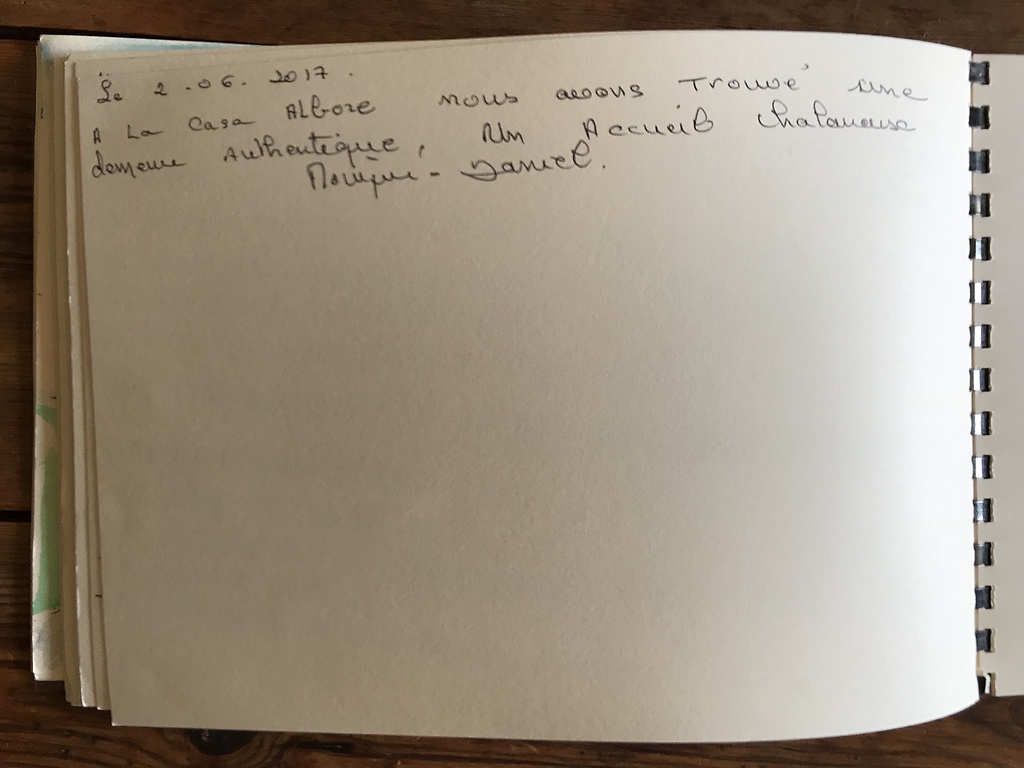 Le 2.06.2017.
A La Casa Albore nous avons Trouvé une
demeure Authentique, Un Accueil chaleureuse
Monique - Daniel.